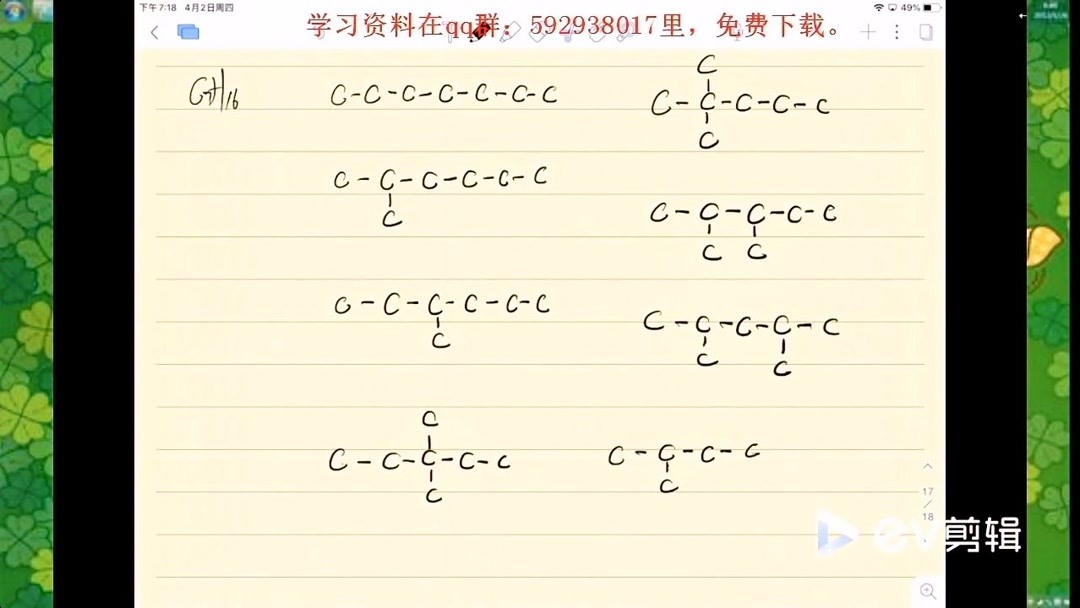 下午7:18 4月2日周四
49%
学习资料在qq群：592938017里，免费下载。
C7H16
C-C-C-C-C-C-C
C
C-C-C-C-C
C
C-C-C-C-C-C
C
C-C-C-C-C
C C
C-C-C-C-C-C
C
C-C-C-C-C
C C
C
C-C-C-C-C
C
C-C-C-C
C
17
/
18
ev剪辑